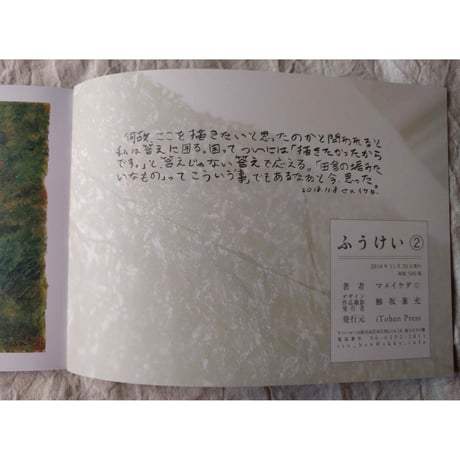 何故、ここを描きたいと思ったのかと問われると
私は答えに困る。困って、ついには「描きたかったから
です。」と、答えじゃない答えで応える。「田舎の場みた
いなもの」ってこういう事でもあるなあと今、思った。
2018.11.8 マメイケダ
ふうけい ②
2018年11月20日発行
著者 マメイケダ©
デザイン
作品撮影
発行者
鯵坂兼充
発行元 iTohen Press
電話番号 06-6292-2811